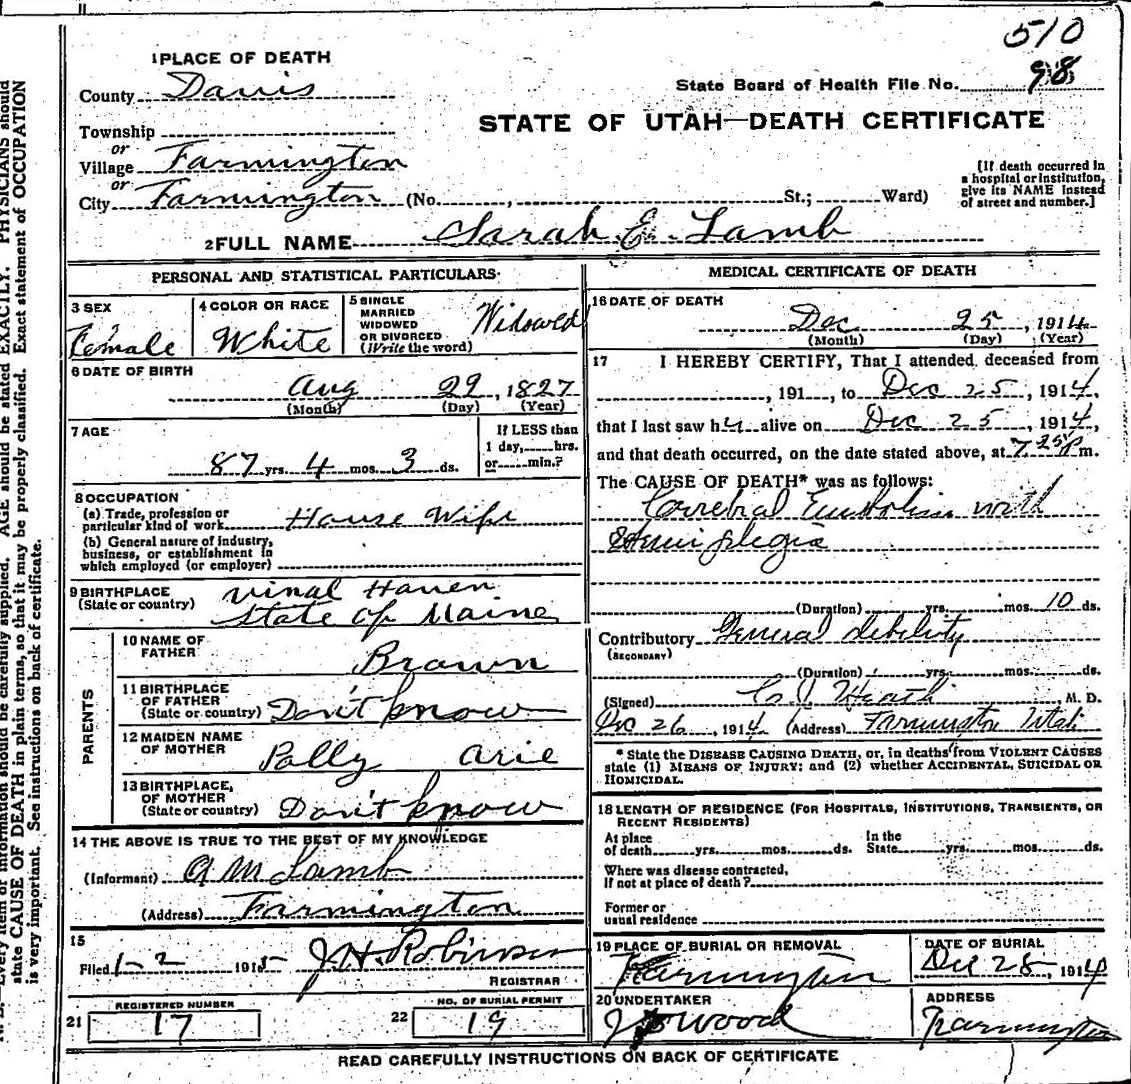 510
1 PLACE OF DEATH
State Board of Health File No. 98
County Davis
STATE OF UTAH—DEATH CERTIFICATE
Township
or
Village Farmington
or
City Farmington (No. , St.; Ward)
[If death occurred in
a hospital or institution,
give its NAME instead
of street and number.]
2 FULL NAME Sarah E. Lamb
PERSONAL AND STATISTICAL PARTICULARS
3 SEX
Female
4 COLOR OR RACE
White
5 SINGLE
MARRIED
WIDOWED
OR DIVORCED
(Write the word)
Widowed
6 DATE OF BIRTH
Aug 22, 1827
(Month) (Day) (Year)
7 AGE
87 yrs. 4 mos. 3 ds.
If LESS than
1 day, hrs.
or min.?
8 OCCUPATION
(a) Trade, profession or
particular kind of work House Wife
(b) General nature of industry,
business, or establishment in
which employed (or employer)
9 BIRTHPLACE
(State or country)
Vinal Haven
State of Maine
PARENTS
10 NAME OF
FATHER
Brown
11 BIRTHPLACE
OF FATHER
(State or country) Don't know
12 MAIDEN NAME
OF MOTHER
Polly Arie
13 BIRTHPLACE,
OF MOTHER
(State or country) Don't know
14 THE ABOVE IS TRUE TO THE BEST OF MY KNOWLEDGE
(Informant) A M Lamb
(Address) Farmington
15
Filed 1-2 1915 J H Robinson
REGISTRAR
21 REGISTERED NUMBER
17
22 NO. OF BURIAL PERMIT
19
MEDICAL CERTIFICATE OF DEATH
16 DATE OF DEATH
Dec 25, 1914
(Month) (Day) (Year)
17 I HEREBY CERTIFY, That I attended deceased from
, 191 , to Dec 25, 1914,
that I last saw her alive on Dec 25, 1914,
and that death occurred, on the date stated above, at 7.25 P m.
The CAUSE OF DEATH* was as follows:
Cerebral Embolism with
Hemiplegia
(Duration) yrs. mos. 10 ds.
Contributory General debility
(SECONDARY)
(Duration) yrs. mos. ds.
(Signed) C J Heath M. D.
Dec 26, 1914 (Address) Farmington Utah
* State the DISEASE CAUSING DEATH, or, in deaths from VIOLENT CAUSES
state (1) MEANS OF INJURY; and (2) whether ACCIDENTAL, SUICIDAL OR
HOMICIDAL.
18 LENGTH OF RESIDENCE (FOR HOSPITALS, INSTITUTIONS, TRANSIENTS, OR
RECENT RESIDENTS)
At place
of death yrs. mos. ds.
In the
State yrs. mos. ds.
Where was disease contracted,
If not at place of death?
Former or
usual residence
19 PLACE OF BURIAL OR REMOVAL
Farmington
DATE OF BURIAL
Dec 28, 1914
20 UNDERTAKER
Wood
ADDRESS
Farmington
READ CAREFULLY INSTRUCTIONS ON BACK OF CERTIFICATE
Every item of information should be carefully supplied. AGE should be stated EXACTLY. PHYSICIANS should
state CAUSE OF DEATH in plain terms, so that it may be properly classified. Exact statement of OCCUPATION
is very important. See instructions on back of certificate.